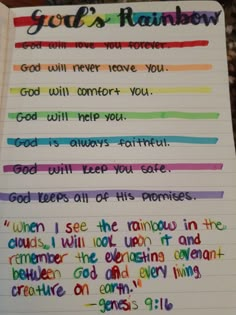 God's Rainbow
God will love you forever.
God will never leave you.
God will comfort you.
God will help you.
God is always faithful.
God will keep you safe.
God keeps all of His promises.
"When I see the rainbow in the
clouds, I will look upon it and
remember the everlasting covenant
between God and every living
creature on earth."
-genesis 9:16